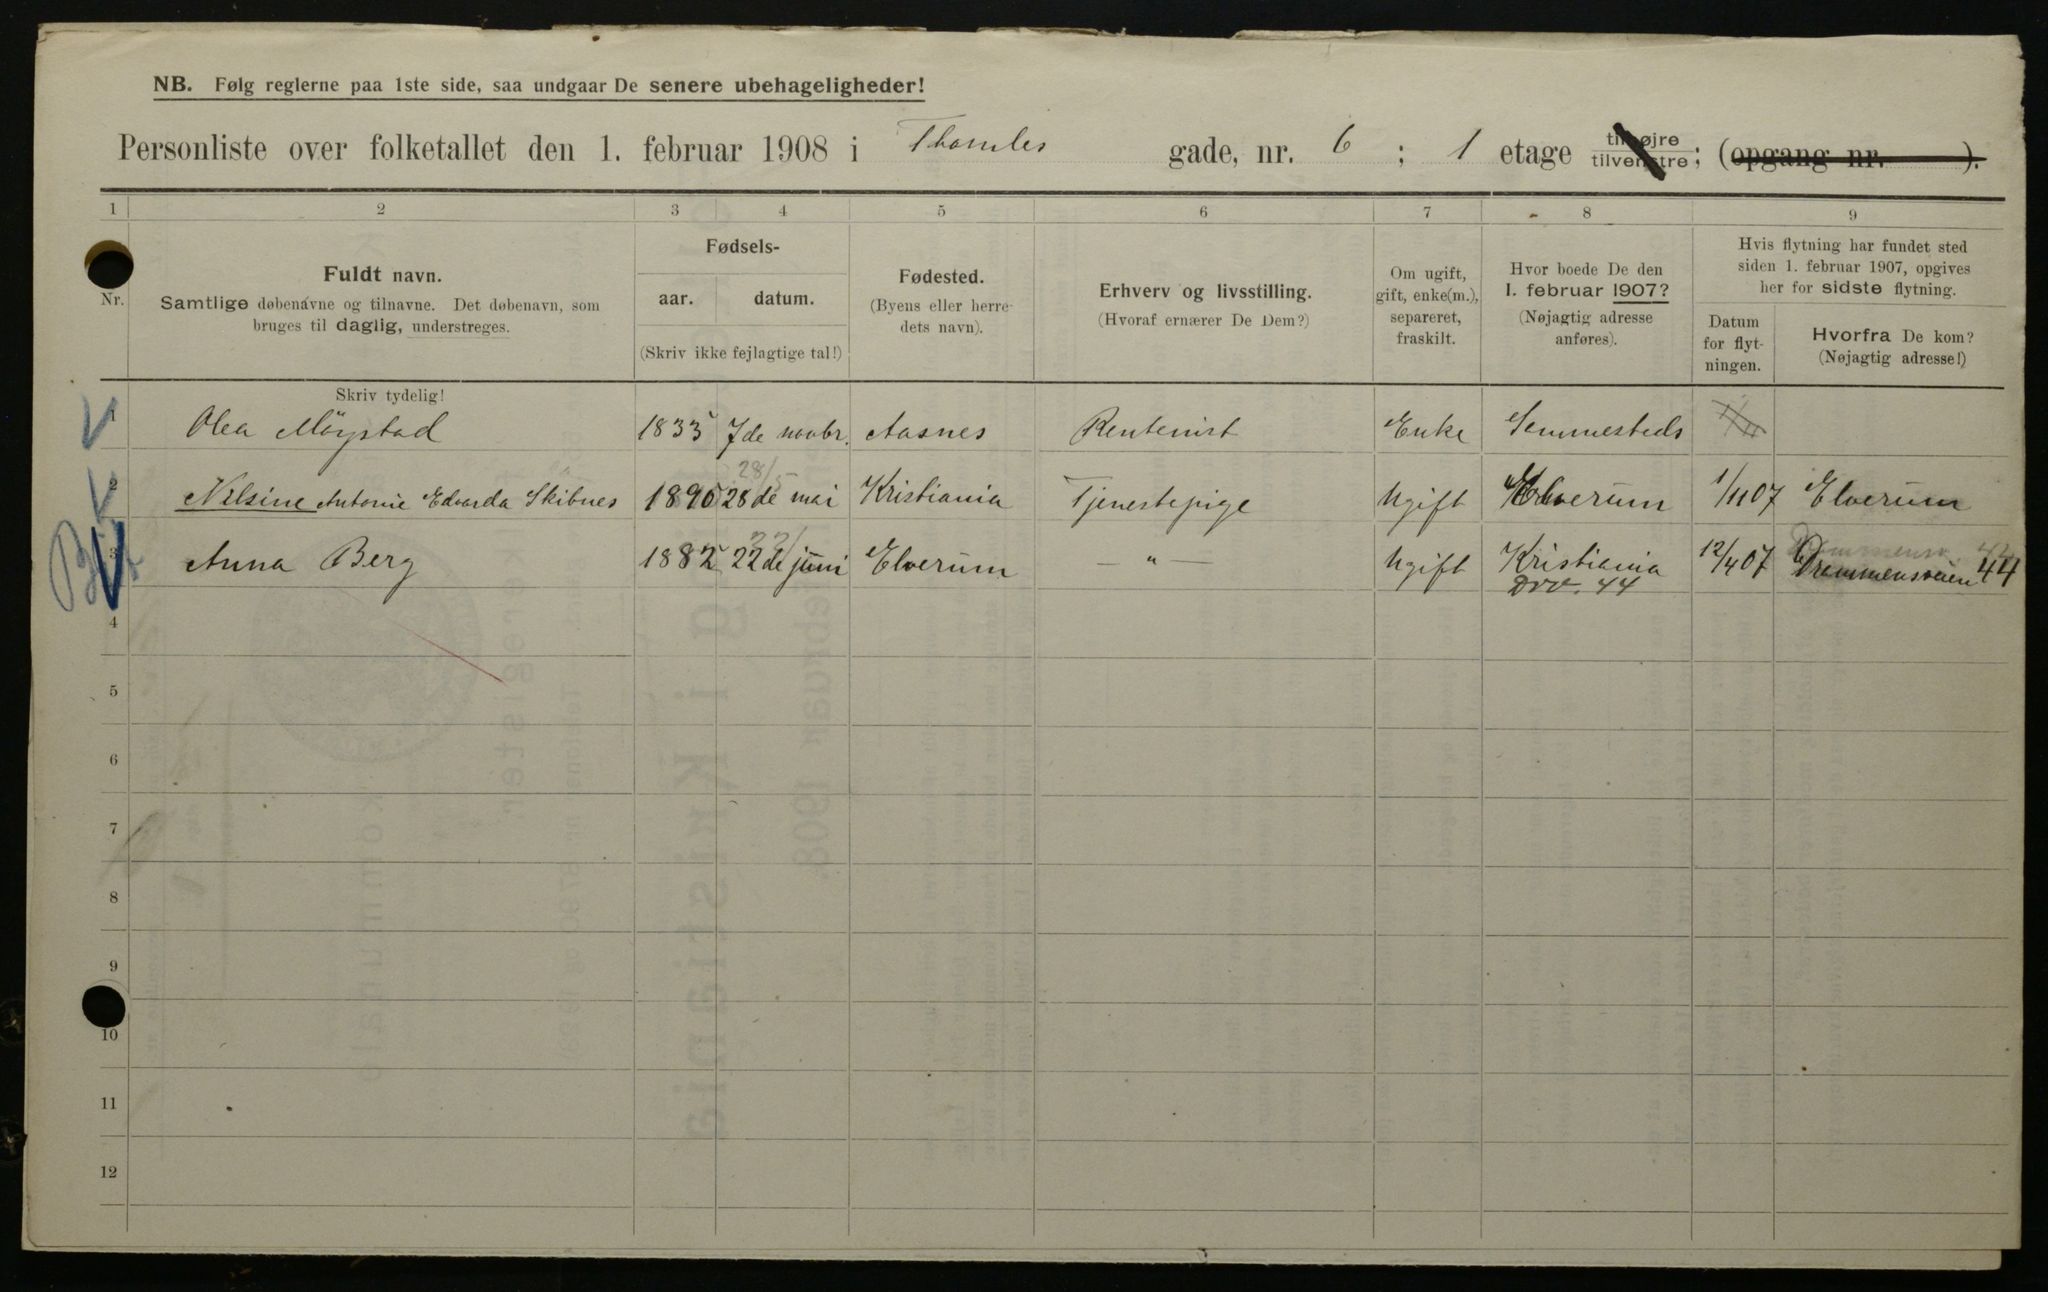 NB. Følg reglerne paa 1ste side, saa undgaar De senere ubehageligheder!
Personliste over folketallet den 1. februar 1908 i Thomles gade, nr. 6 ; 1 etage tilhøjre tilvenstre ; (opgang nr. ).
1 2 3 4 5 6 7 8 9
Nr.
Fuldt navn.
Samtlige døbenavne og tilnavne. Det døbenavn, som
bruges til daglig, understreges.
Skriv tydelig!
Fødsels-
aar. datum.
(Skriv ikke fejlagtige tal!)
Fødested.
(Byens eller herre-
dets navn).
Erhverv og livsstilling.
(Hvoraf ernærer De Dem?)
Om ugift,
gift, enke(m.),
separeret,
fraskilt.
Hvor boede De den
1. februar 1907?
(Nøjagtig adresse
anføres).
Hvis flytning har fundet sted
siden 1. februar 1907, opgives
her for sidste flytning.
Datum
for flyt-
ningen.
Hvorfra De kom?
(Nøjagtig adresse!)
1 Olea Möystad 1835 7de novbr. Aasnes Rentenist Enke Semmesteds
28/5
2 Nilsine Antonie Edvarda Skibnes 1890 28de mai Kristiania Tjenestepige Ugift Elverum 1/11 07 Elverum
22/
3 Anna Berg 1882 22de juni Elverum — " — Ugift Kristiania 12/4 07 Drammensveien 44
Drv. 44
4
5
6
7
8
9
10
11
12